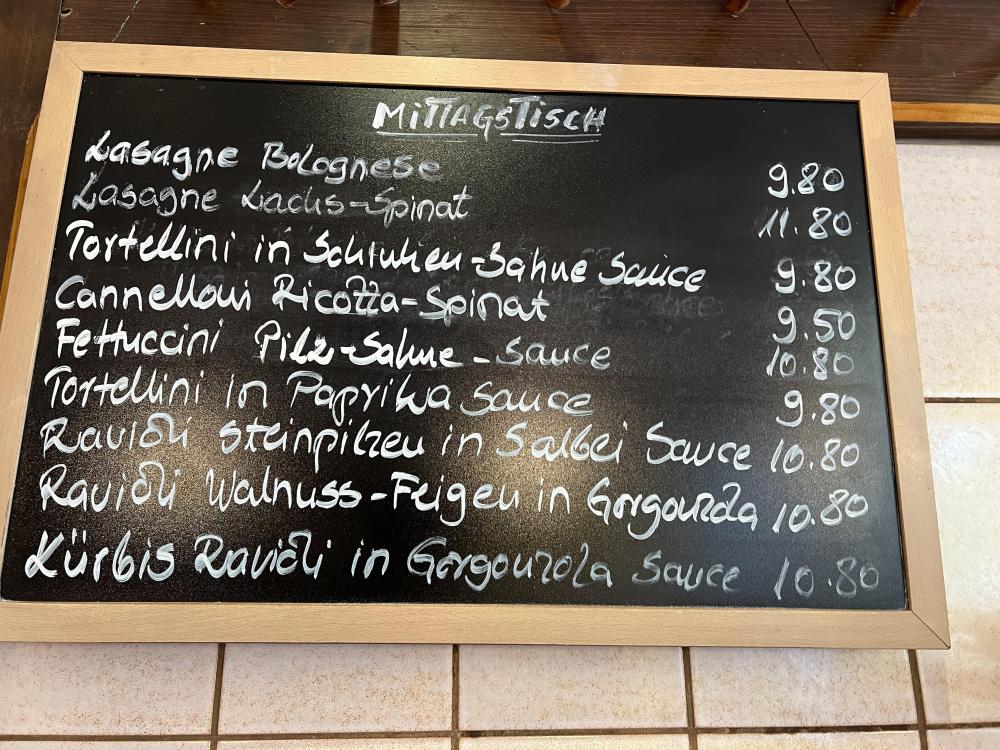 MITTAGSTISCH
Lasagne Bolognese 9.80
Lasagne Lachs-Spinat 11.80
Tortellini in Schinken-Sahne Sauce 9.80
Cannelloni Ricotta-Spinat 9.50
Fettuccini Pilz-Sahne-Sauce 10.80
Tortellini in Paprika Sauce 9.80
Ravioli Steinpilzen in Salbei Sauce 10.80
Ravioli Walnuss-Feigen in Gorgonzola 10.80
Kürbis Ravioli in Gorgonzola Sauce 10.80